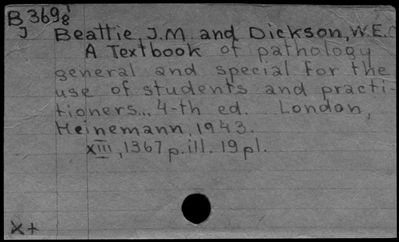 B 3698
J Beattie, J.M. and Dickson, W.E.C
A Textbook of pathology
general and special for the
use of students and practi-
tioners... 4-th ed. London,
Heinemann, 1943.
XIII, 1367 p. ill. 19 pl.
X+